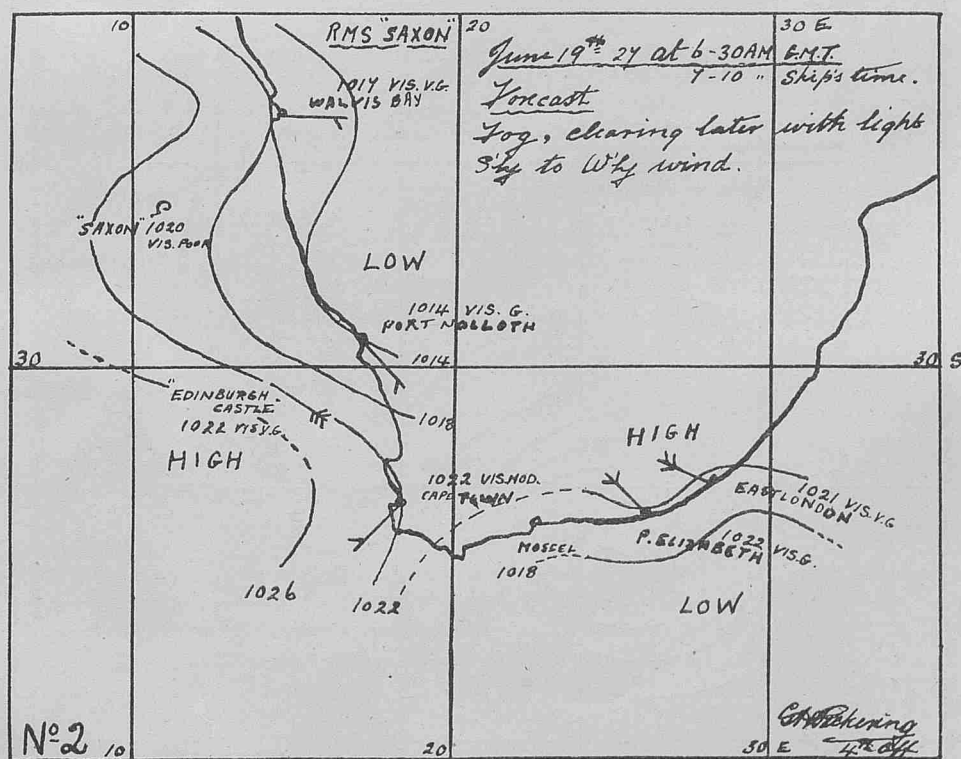 10
RMS "SAXON"
20
30 E
June 19th 27 at 6-30AM G.M.T.
7-10 " Ship's time.
Forecast
Fog, clearing later with light
S'ly to W'ly wind.
1017 VIS. V.G.
WALVIS BAY
"SAXON" 1020
VIS. POOR
LOW
1014 VIS. G.
PORT NOLLOTH
1014
30
30 S
"EDINBURGH
CASTLE
1022 VIS.V.G
1018
HIGH
HIGH
1022 VIS.MOD.
CAPE TOWN
1021 VIS. V.G
EAST LONDON
1022 VIS.G.
P. ELIZABETH
MOSSEL
1018
1026
1022
LOW
No 2
10
20
30 E
Pickering
4th Off